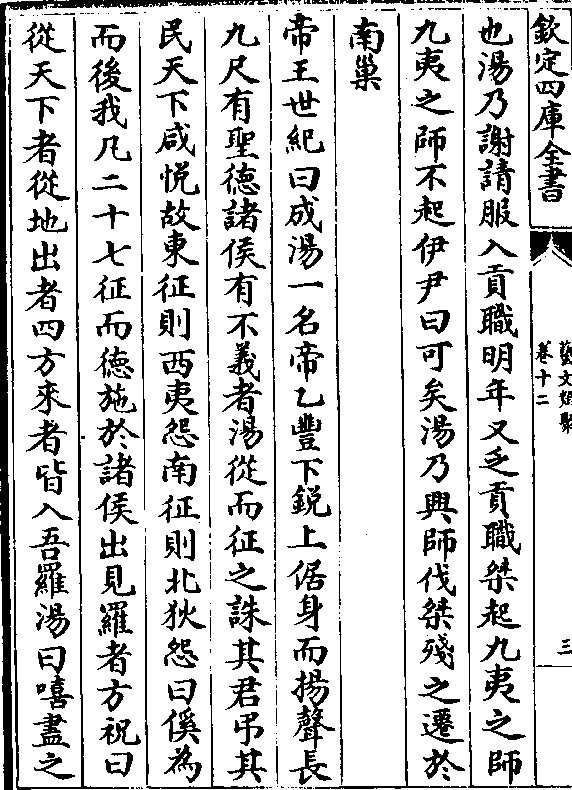 欽定四庫全書
藝文類聚
卷十二
三
也湯乃謝請服入貢職明年又乏貢職桀起九夷之師
九夷之師不起伊尹曰可矣湯乃興師伐桀殘之遷於
南巢
帝王世紀曰成湯一名帝乙豐下銳上倨身而揚聲長
九尺有聖德諸侯有不義者湯從而征之誅其君弔其
民天下咸悅故東征則西夷怨南征則北狄怨曰傒為
而後我凡二十七征而德施於諸侯出見羅者方祝曰
從天下者從地出者四方來者皆入吾羅湯曰嘻盡之